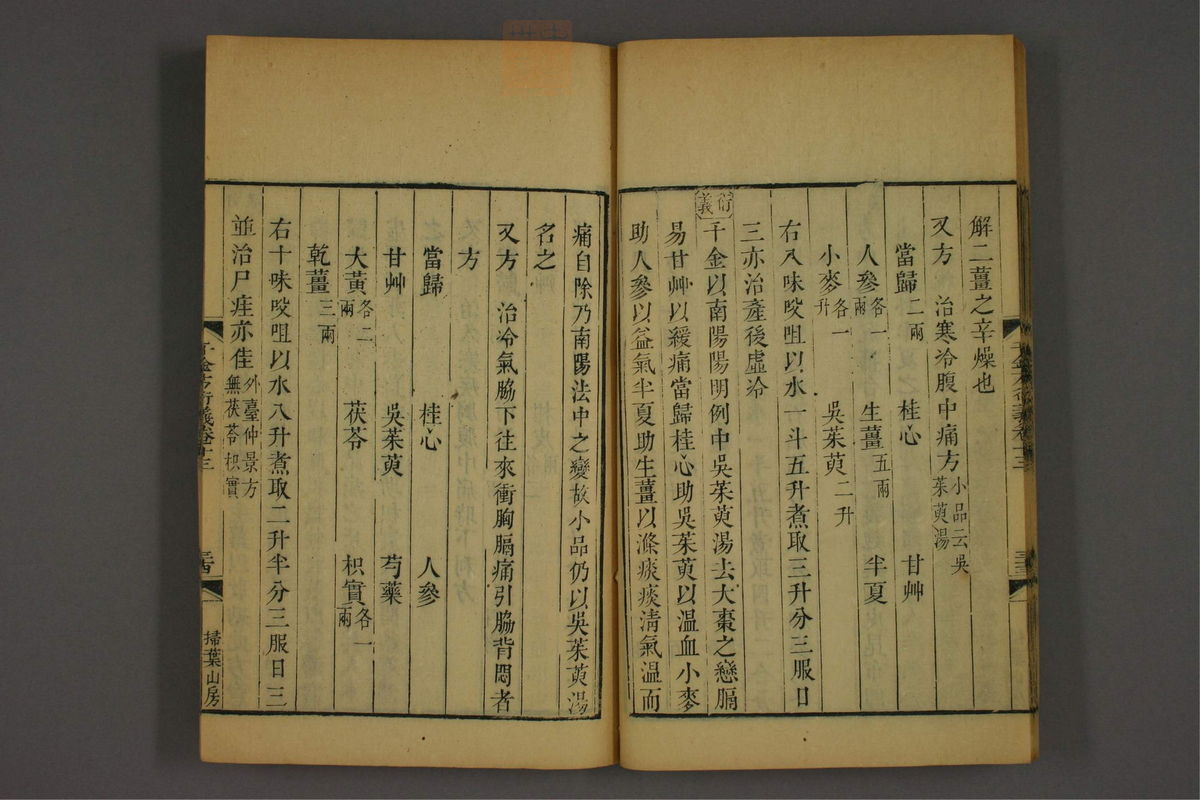 解二薑之辛燥也
又方　治寒冷腹中痛方小品云吳茱萸湯
當歸二兩　桂心　甘艸
人參各一兩　生薑五兩　半夏
小麥各一升　吳茱萸二升
右八味㕮咀以水一斗五升煮取三升分三服日
三亦治產後虛冷
衍義
千金以南陽陽明例中吳茱萸湯去大棗之戀膈
易甘艸以緩痛當歸桂心助吳茱萸以溫血小麥
助人參以益氣半夏助生薑以滌痰痰淸氣溫而
痛自除乃南陽法中之變故小品仍以吳茱萸湯
名之
又方　治冷氣脇下往來衝胸膈痛引脇背悶者
方
當歸　桂心　人參
甘艸　吳茱萸　芍藥
大黃各二兩　茯苓　枳實各一兩
乾薑三兩
右十味㕮咀以水八升煮取二升半分三服日三
並治尸疰亦佳外臺仲景方無茯苓枳實
千金方衍義卷十三
三四
掃葉山房